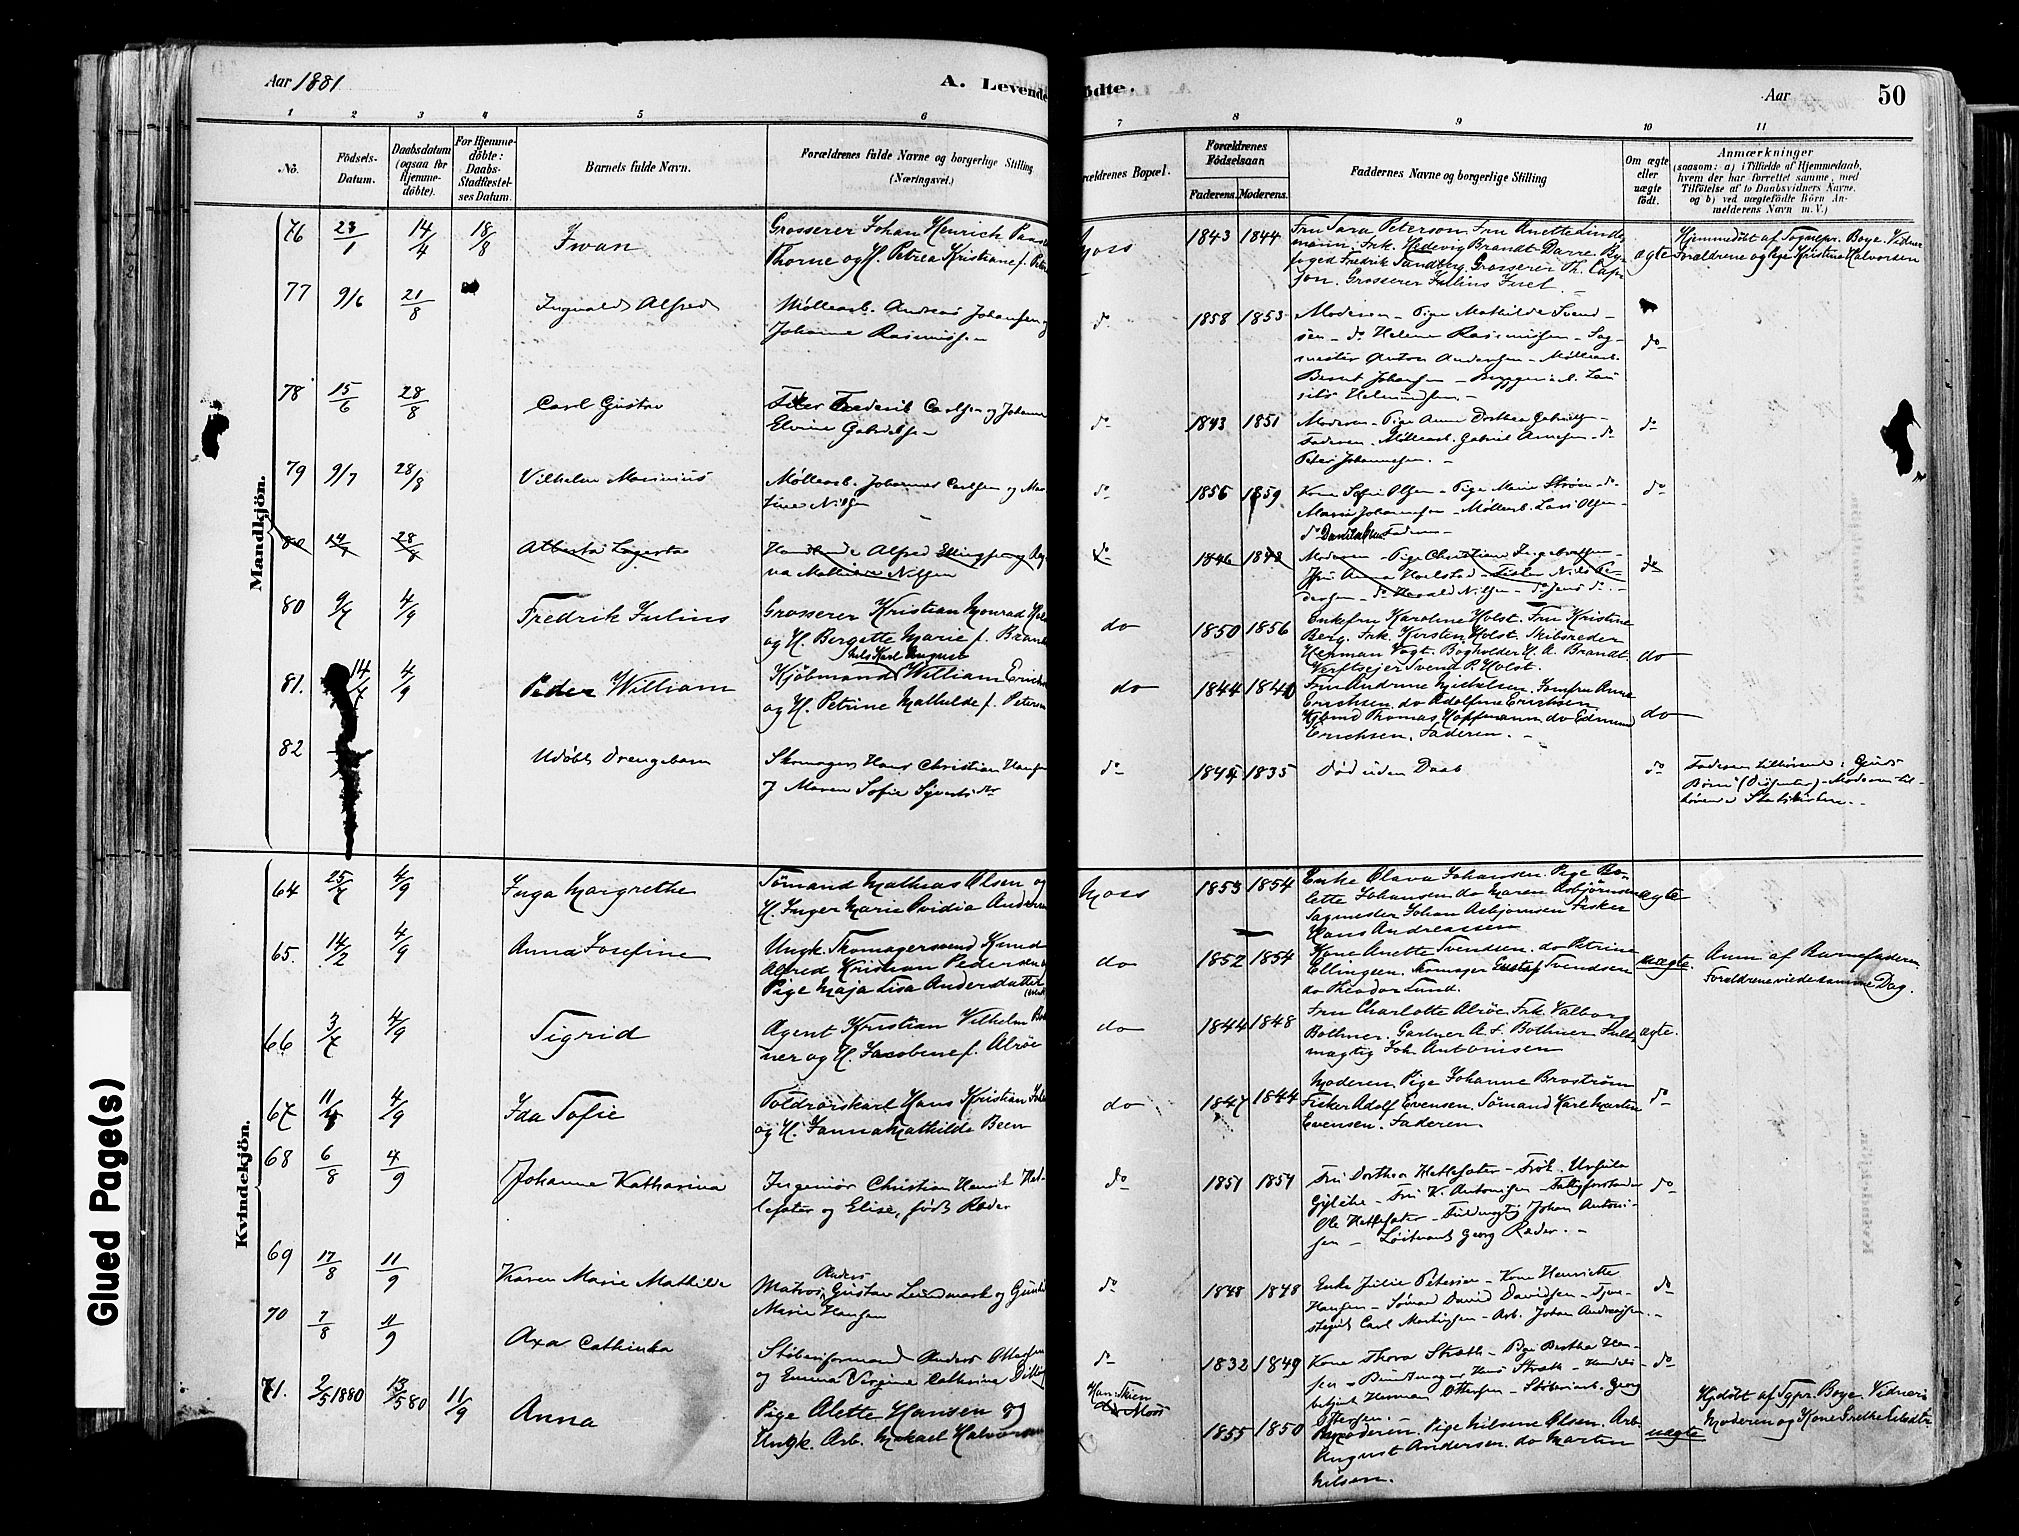 Aar 1881
A. Levende
ødte.
Aar
50
1 2 3 4 5 6 7 8 9 10 11
No.
Födsels-
Datum.
Daabsdatum
(ogsaa for
Hjemme-
döbte).
For Hjemme-
döbte:
Daabs-
Stadfæstel-
ses Datum.
Barnets fulde Navn.
Forældrenes fulde Navne og borgerlige Stilling
(Næringsvei.)
rældrenes Bopæl.
Forældrenes
Födselsaar
Faderens. Moderens.
Faddernes Navne og borgerlige Stilling
Om ægte
eller
uægte
födt.
Anmærkninger
(saasom: a) i Tilfælde af Hjemmedaab,
hvem der har forrettet samme, med
Tilföielse af to Daabsvidners Navne,
og b) ved uægtefödte Börn An-
melderens Navn m. V.)
Mandkjön.
76 23/1 14/4 18/8 Iwan
Grosserer Johan Henrich
Thorne og H. Petrea Kristiane f. Peter
Moss 1843 1844
Fru Sara Peterson. Fru Anette Linde
mann. Frk. Hedevig Brandt Darre. By
foged Fredrik Sandberg. Grosserer Th.
son. Grosserer Julius
ægte
Hjemmedøbt af Sognepr. Boye. Vidner
Forældrene og Pige Kristine Halvorsen
77 9/6 21/8 Ingvald Alfred
Møllearb. Andreas Johansen og
Johanne Rasmussen
do 1858 1853
Moderen - Pige Mathilde Svend-
sen - do Helene Rasmussen - Sag-
mester Anton Andersen - Møllearb.
Bernt Johansen - Bryggeriarb.
do
78 15/6 28/8 Carl Gustav
Frederik Carlsen og Johanne
Elvine Gabrielsen
do 1843 1851
Moderen - Pige Anne Dorthea Gabriels -
Faderen - Møllearb. Gabriel Arnesen - do
Peter Johannesen. -
do
79 9/7 28/8 Vilhelm Marinius
Møllearb. Johannes Carlsen og Mar
tine Nilsen
do 1856 1859
Kone Sofie Olsen - Pige Marie Strøm - do
Marie Johannesen - Møllearb. Lars Olsen -
Faderen -
do
80 14/7 28/8 Alberta Lagertha
Alfred Ellingsen og Rag
na Mathea Nilsen
do 1846 1848
Moderen - Pige Christiane Ingebretsen -
Anna Harlstad - Fisker Nils Pe-
dersen - do Harald Nilsen - do Jens do -
do
80 9/7 4/9 Fredrik Julius
Grosserer Kristian Monrad Hol
og H. Birgette Marie f. Brandt
do 1850 1856
Enkefru Karoline Holst. Fru Kristine
Berg. Frk. Kirsten Holst. Skibsreder
Herman Vogt. Bogholder H. A. Brandt.
Verftseier Svend P. Holst.
do
81. 14/7 4/9 Peder William
Nils Karl August
Kjöbmand William Erich
og H. Petrine Mathilde f. Peters
do 1844 1840
Fru Andrine Michelsen. Jomfru Anna
Erichsen. do Adolfine Erichsen
Kjbmd Thomas Hoffmann do Edmund
Erichsen. Faderen. -
do
82 Udøbt Drengebarn
Skomager Hans Christian Hansen
og Maren Sofie Syvertsdtr
do 1845 1835
Død uden Daab
do
Faderen tilhørende: Guds
Børn (Dissenter) - Moderen til-
hørende Statskirken. -
Kvindekjön.
64 25/7 4/9 Inga Margrethe
Sömand Mathias Olsen og
H. Inger Marie Ovidia Andersen
Moss 1853 1854
Enke Olava Johansen. Pige Bo-
lette Johansen. do Maren Asbjörnsen
Sagmester Johan Asbjornsen Fisker
Hans Andreassen
ægte
65. 14/2 4/9 Anna Josefine
Ungk. Skomagersvend Knud
Alfred Kristian Pedersen og
Pige Maja Lisa Andersdatter
do 1852 1854
Kone Anette Svendsen. do Petrine
Ellingsen. Skomager Gustaf Svendsen
do Theodor Lund.
uægte.
Anm. af Barnefaderen
Foreldrene viede samme Dag.
66 3/7 4/9 Sigrid
Agent Kristian Vilhelm Both
ner og H. Jacobine f. Alröe
do 1844 1848
Fru Charlotte Alröe. Frk. Valborg
Bothner. Gartner A. F. Bothner. Fuld
magtig Joh. Antonisen
ægte.
67 11/4 4/9 Ida Sofie
Toldrorskarl Hans Kristian
og H. Janna Mathilde Been
do 1847 1844
Moderen. Pige Johanne Broström
Fisker Adolf Evensen. Sömand Karl Martin
Evensen. Faderen.
do
68 6/8 4/9 Johanne Katharina
Ingeniør Christian Henrik Het-
lesæter og Elise, født Ræder
do 1851 1851
Fru Dorthea Hetlesæter - Frøk. Ursula
- Fru K. Antonisen - Fattigforstander
Ole Hetlesæter - Fuldmægtig Johan Antoni-
sen - Løitnant Georg Ræder. -
do
69 17/8 11/9 Karen Marie Mathilde
Anders
Matros Gustav Lundmark og
Marie Hansen
do 1848 1848
Enke Julie Petersen - Kone Henriette
Hansen - Sømand David Davidsen - Tje-
Carl Martinsen - Arb. Johan Andreassen
do
70 7/8 11/9 Axa Cathinka
Støberiformand Anders Ottersen
og Emma Virginie Cathrine
do 1832 1849
Kone Thora Stræth - Pige Bertha Han-
sen - Hans Stræth - Handels
betjent Herman Ottersen - Støberiarb. Georg
Ottersen. -
do
71. 2/5 1880 13/5 80 11/9 Anna
Pige Alette Hansen og
Ungk. Arb. Mikael Halvorsen
Han Skien
Moss 1855 1850
Moderen. Pige Nilsine Olsen. Arb.
August Andersen. do Martin
Nilsen.
uægte
Hjdøbt af Sgpr. Boye. Vidner:
Moderen og Kone Grethe
Glued Page(s)